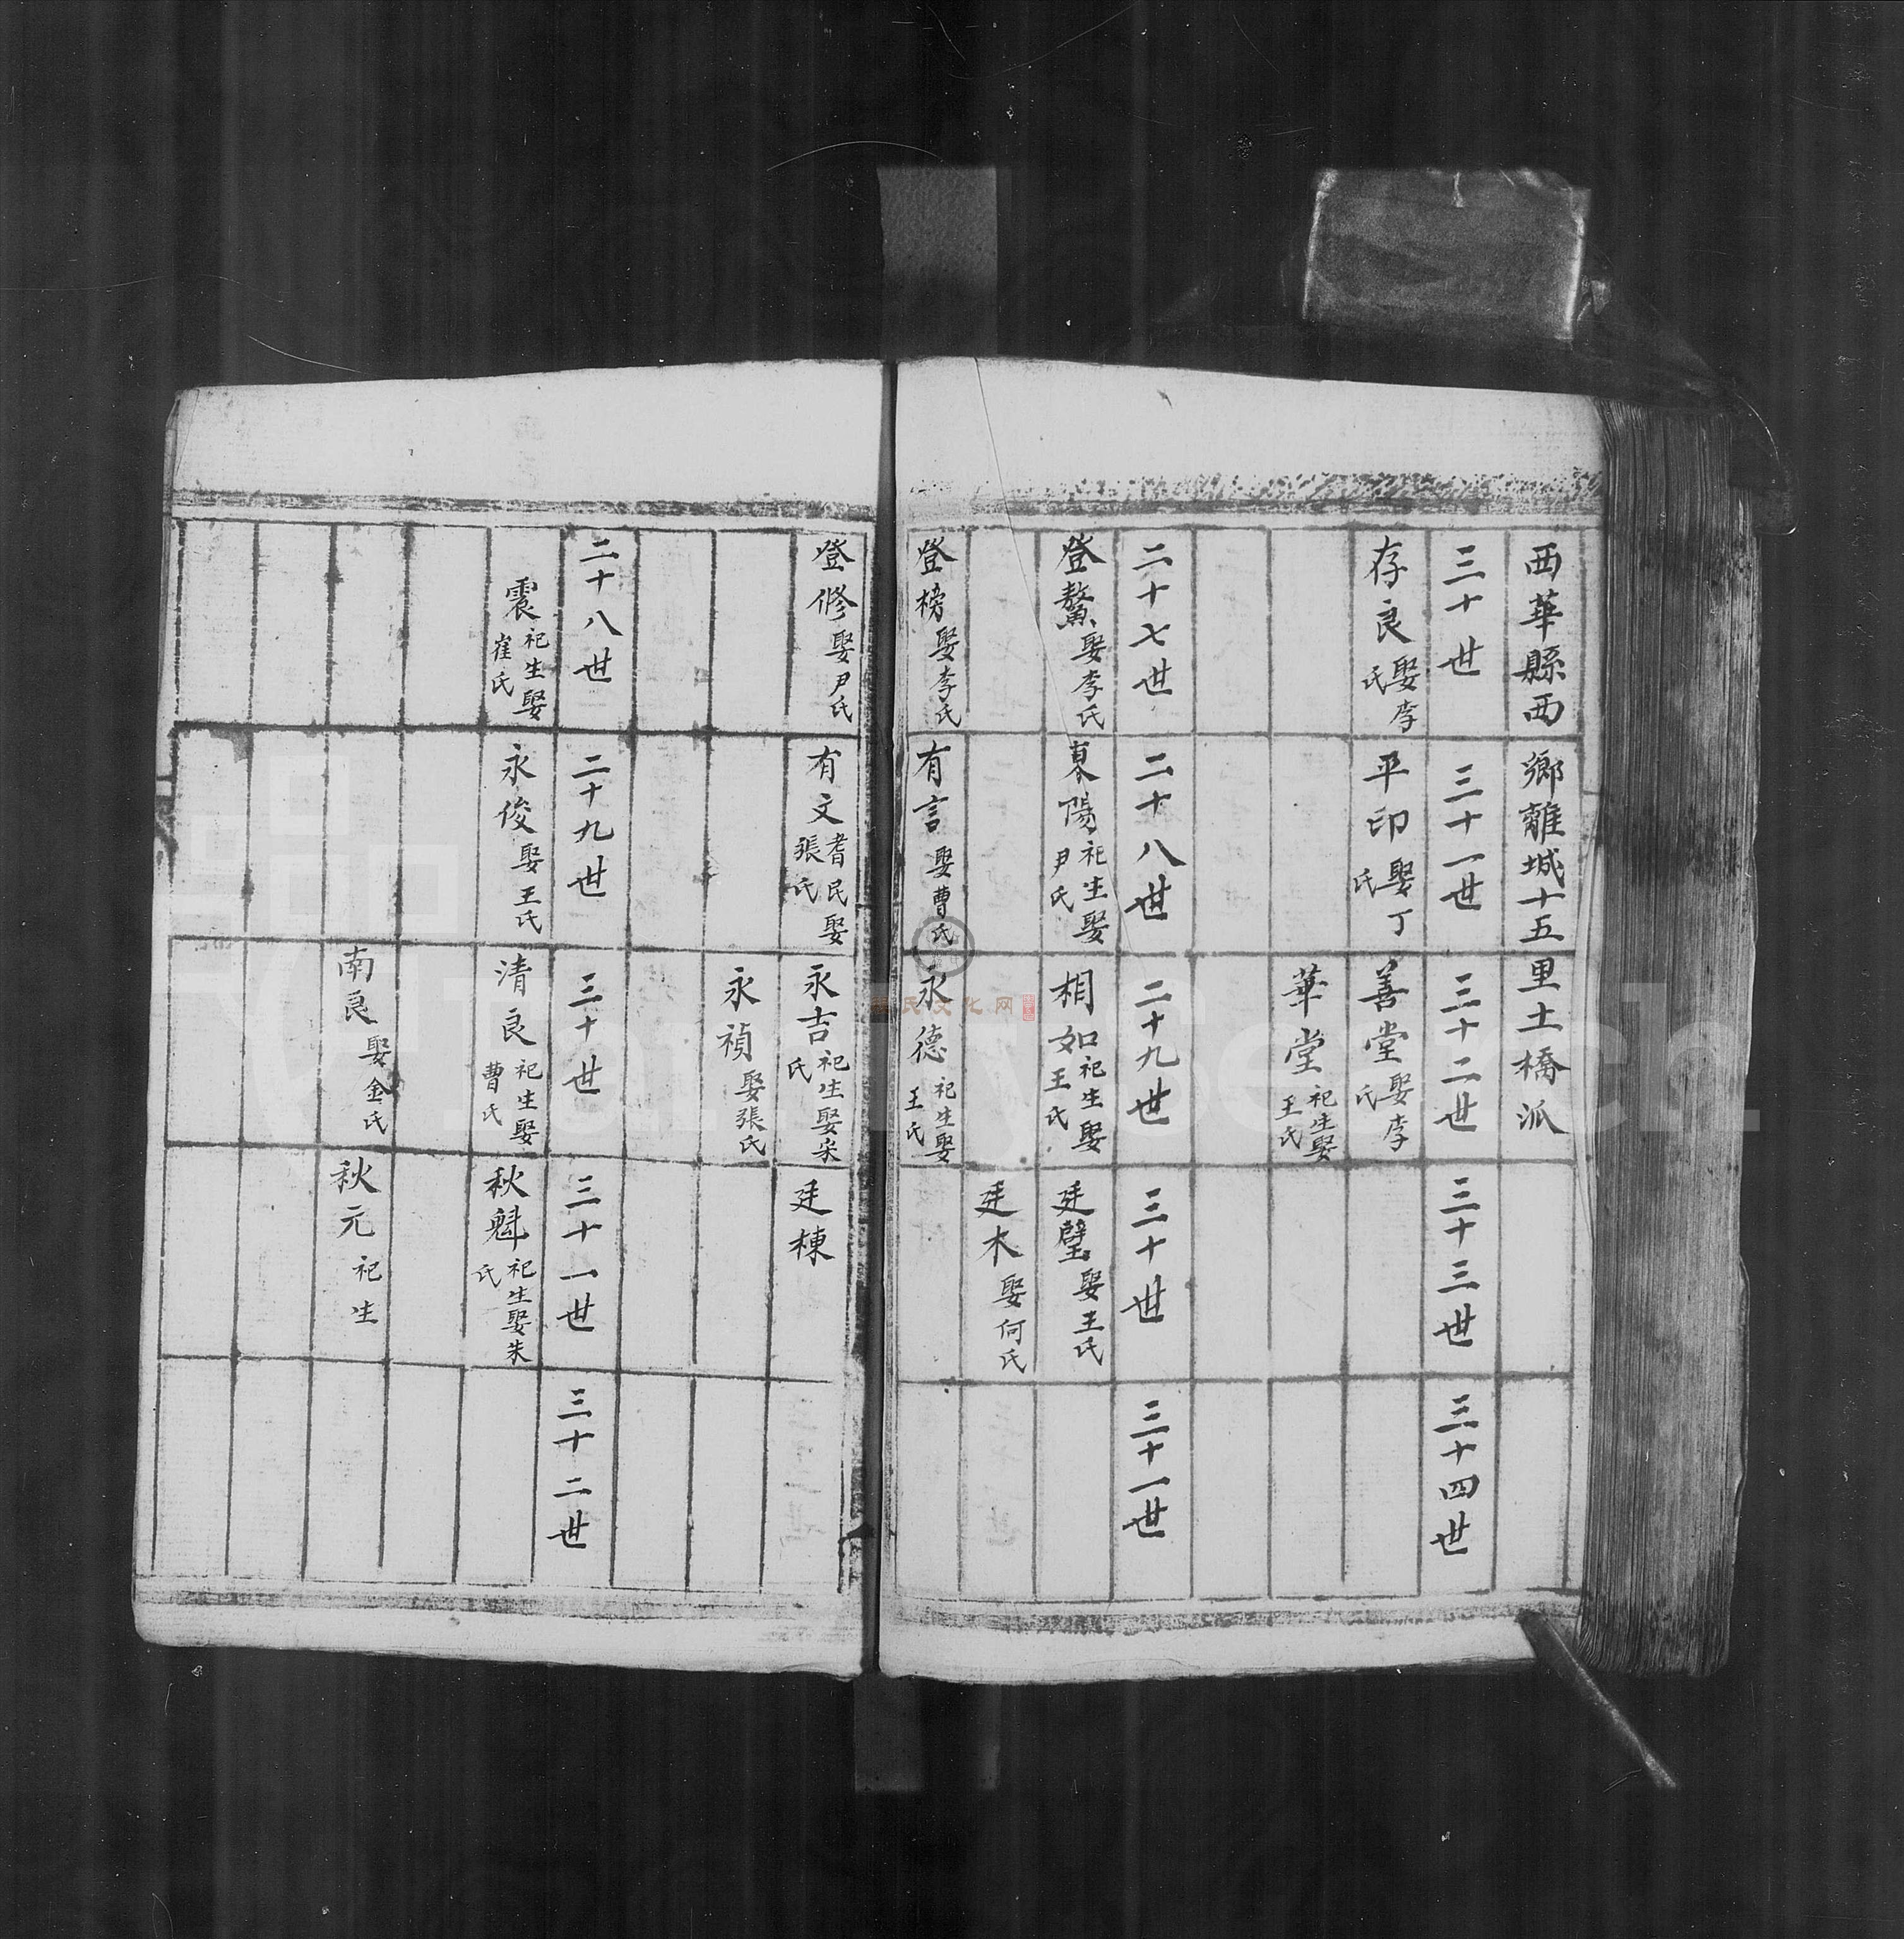 西華縣西鄉離城十五里土橋派
三十世 三十一世 三十二世 三十三世 三十四世
存良娶李氏 平印娶丁氏 善堂娶李氏
華堂祀生娶王氏
二十七世 二十八世 二十九世 三十世 三十一世
登鰲娶李氏 東陽祀生娶尹氏 相如祀生娶王氏 廷璧娶王氏
廷木娶何氏
登榜娶李氏 有言娶曹氏 永德祀生娶王氏
登修娶尹氏 有文耆民娶張氏 永吉祀生娶宋氏 廷棟
永禎娶張氏
二十八世 二十九世 三十世 三十一世 三十二世
震祀生娶崔氏 永俊娶王氏 清良祀生娶曹氏 秋魁祀生娶朱氏
南良娶金氏 秋元祀生
氏文化网